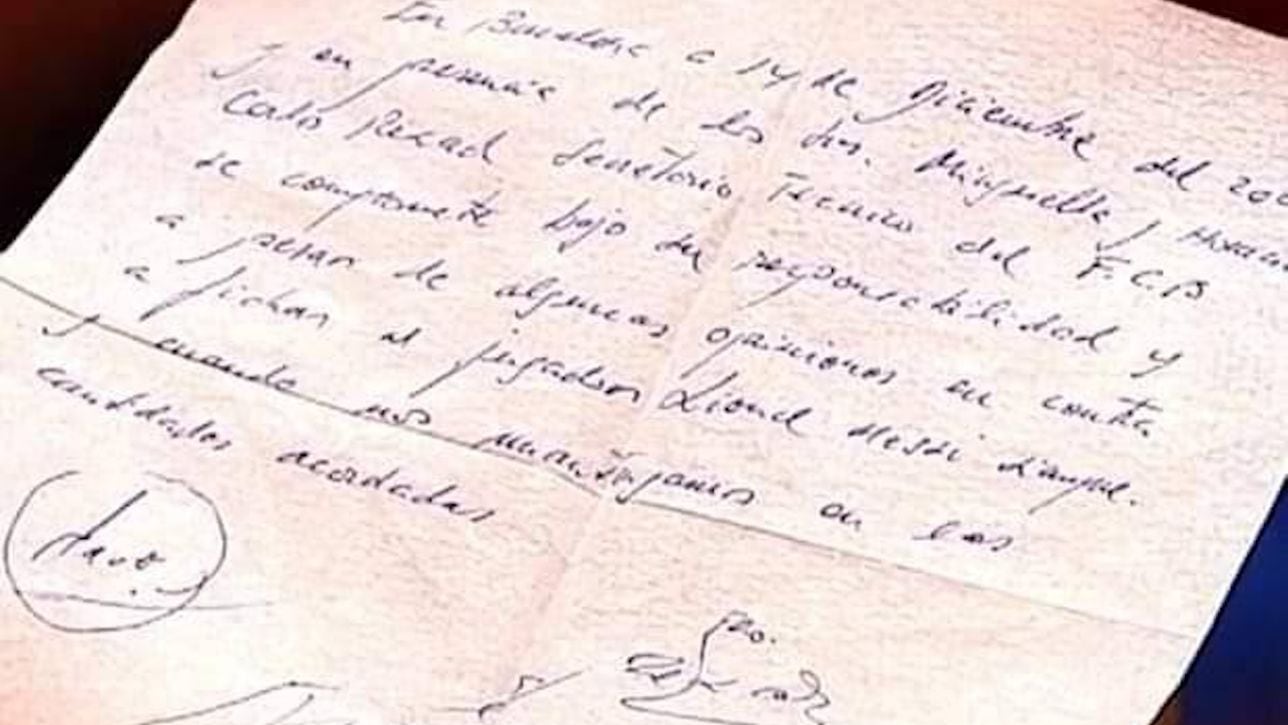 En Barcelona a 14 de Diciembre del 20
y en presencia de los Srs. Minguella y Horacio
Carlos Rexach Secretario Tecnico del F.C.B
se compromete bajo su responsabilidad y
a pesar de algunas opiniones en contra
a fichar al jugador Lionel Messi siempre
y cuando nos mantengamos en las
cantidades acordadas